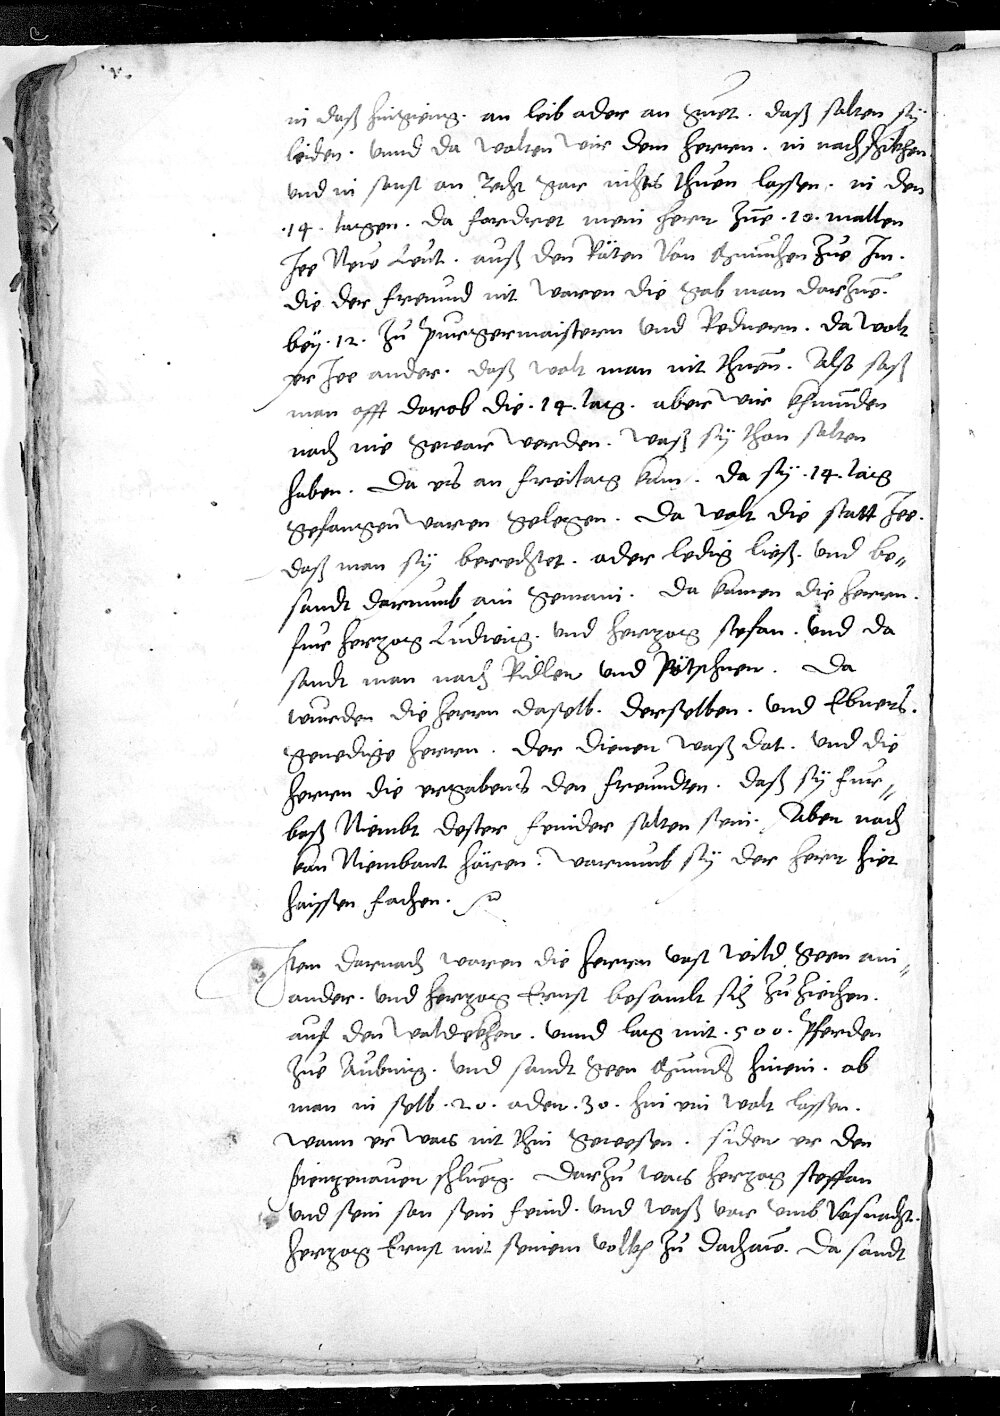 in daß hingieng. an leib oder an guet. daß solten sy
leiden. vnnd da wolten wir dem herren. in nachschikhen
vnd in sonst an Recht gar nichts thuen lassen. in den
.14. tagen. da fordret mein herr zue .10. mallen
Jee New Leut. auß den Räten von München zue Im.
die der freund nit waren die gab man darzue.
bey .12. zu purgermaistern vnd Rednern. da wolt
er Jee ander. daß wolt man nit thuen. Also saß
man offt darob die .14. tag. aber wir khunden
noch nie gewar werden. waß sy thon solten
haben. Da es an freitag kam. da sy .14. tag
gefangen waren gelegen. Da wolt die statt Jee.
daß man sy berechtet. oder ledig ließ. vnd be-
sandt darumb ain gemain. Da kamen die herren.
fur herzog Ludwig. vnd herzog stefan. vnd da
sandt man nach Ridler vnd Pötschner. Da
wurden die herren daselb. derselben. vnd Ebners.
genedige herren. der diener waß dot. vnd die
herren die ergabens den freundten. daß sy fur-
baß Niembt dester feinder solten sein. Aber noch
kan Niembant hören. warumb sy der herr hiet
haissen fachen.
Item darnach waren die herren vast wild geen ain-
ander. vnd herzog Ernst besamlt sich zu ziechen.
auf den waldekher. vnnd lag mit .500. Pferden
zue Aubing. vnd sandt geen München hinein. ob
man in selb .20. oder .30. hin ein wolt lassen.
wann er was nit hin gewesen. sider er den
pienzenauer schlueg. Darzu was herzog steffan
vnd sein son sein feind. vnd waß vor vmb Vasnacht.
herzog Ernst mit seinem volkh zu dachaw. Da sandt